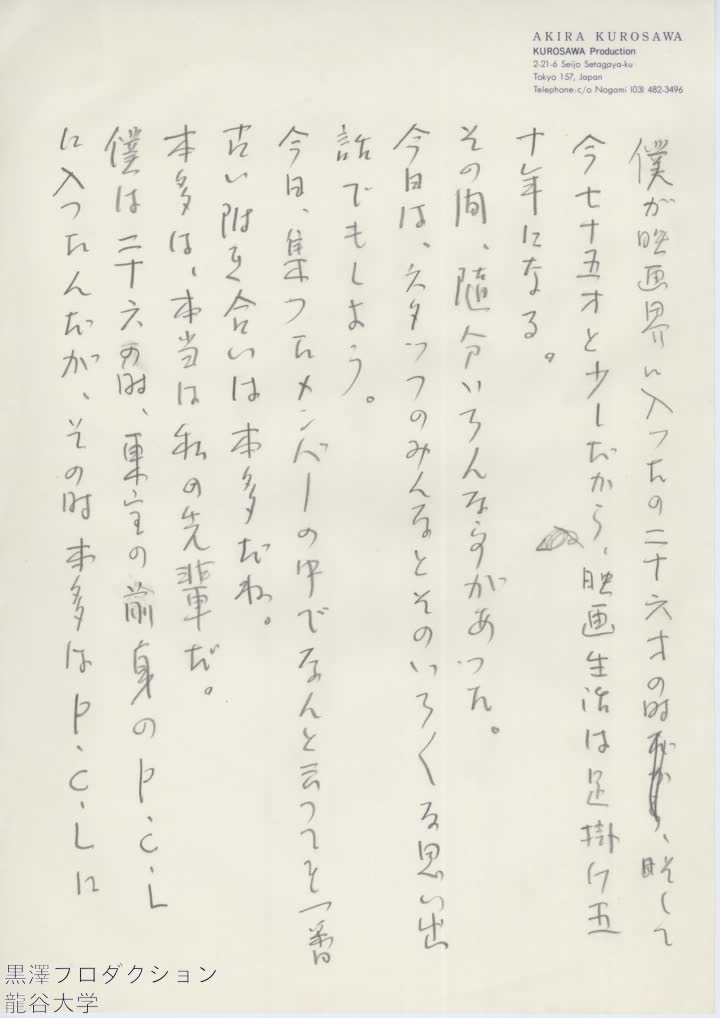 AKIRA KUROSAWA
KUROSAWA Production
2-21-6 Seijo Setagaya-ku
Tokyo 157, Japan
Telephone:c/o Nogami (03) 482-3496
僕が映画界に入ったの二十六才の時、そして
今七十五才と少しだから、映画生活は足掛け五
十年になる。
その間、随分いろんな事があった。
今日は、スタッフのみんなとそのいろ〱な思い出
話でもしよう。
今日、集ったメンバーの中でなんと云っても一番
古い附き合いは本多だね。
本多は、本当は私の先輩だ。
僕は二十六の時、東宝の前身のP.C.L
に入ったんだが、その時本多はP.C.Lに
黒澤プロダクション
龍谷大学